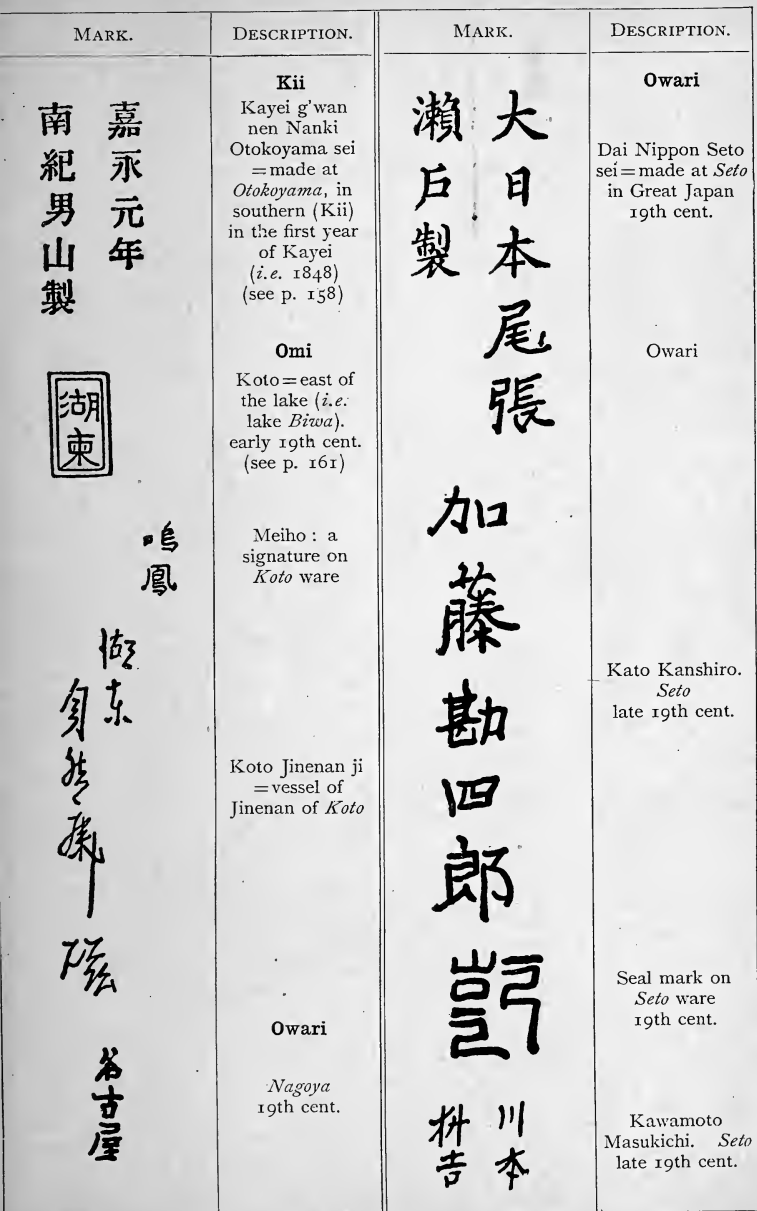 MARK.
DESCRIPTION.
嘉永元年
南紀男山製
Kii
Kayei g'wan
nen Nanki
Otokoyama sei
=made at
Otokoyama, in
southern (Kii)
in the first year
of Kayei
(i.e. 1848)
(see p. 158)
湖東
Omi
Koto=east of
the lake (i.e.
lake Biwa).
early 19th cent.
(see p. 161)
鳴鳳
Meiho : a
signature on
Koto ware
湖东
自然菴
磁
Koto Jinenan ji
=vessel of
Jinenan of Koto
名古屋
Owari
Nagoya
19th cent.
MARK.
DESCRIPTION.
大日本尾張
瀨戸製
Owari
Dai Nippon Seto
sei=made at Seto
in Great Japan
19th cent.
Owari
加藤勘四郎
Kato Kanshiro.
Seto
late 19th cent.
Seal mark on
Seto ware
19th cent.
川本
枡吉
Kawamoto
Masukichi. Seto
late 19th cent.